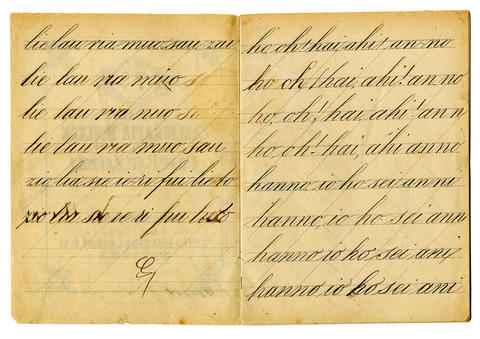 lie lau ria muo sau zui
lie lau ria muo s
lie lau ria nuo sa
lie lau ria muo sau
zio lia sie ie ri fui lie to
zio lia sie ie ri fui lieto
ho, oh! hai, ahi! an no
ho oh! hai, ahi! an no
ho, oh! hai, ahi! an n
ho, oh! hai, ahi anno
hanno io ho sei an ni
hanno, io ho sei ann
hanno io ho sei ani
hanno, io ho sei ani